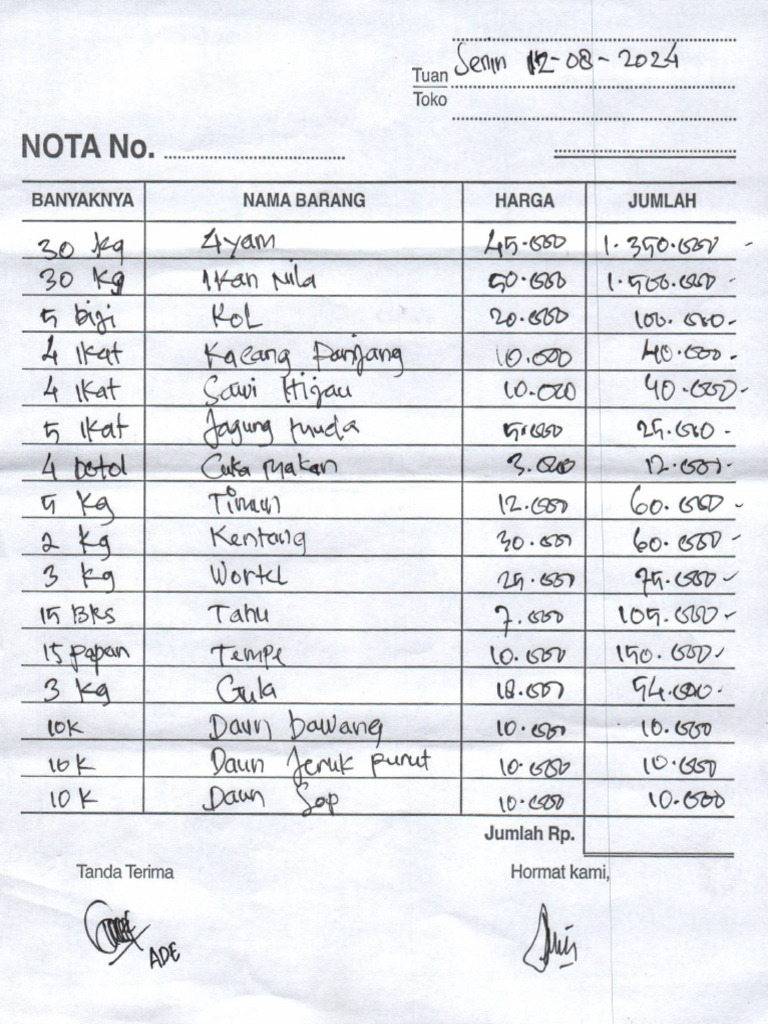 Senin 12-08-2024
Tuan
Toko
NOTA No.
BANYAKNYA NAMA BARANG HARGA JUMLAH
30 kg Ayam 45.000 1.350.000 -
30 kg Ikan Nila 50.000 1.500.000 -
5 biji Kol 20.000 100.000 -
4 Ikat Kacang Panjang 10.000 40.000 -
4 Ikat Sawi Hijau 10.000 40.000 -
5 Ikat Jagung Muda 5.000 25.000 -
4 botol Cuka Makan 3.000 12.000 -
5 Kg Timun 12.000 60.000 -
2 Kg Kentang 30.000 60.000 -
3 Kg Wortel 25.000 75.000 -
15 Bks Tahu 7.000 105.000 -
15 papan Tempe 10.000 150.000 -
3 Kg Gula 18.000 54.000 -
10k Daun bawang 10.000 10.000
10k Daun Jeruk purut 10.000 10.000
10k Daun Sop 10.000 10.000
Jumlah Rp.
Tanda Terima Hormat kami,
ADE